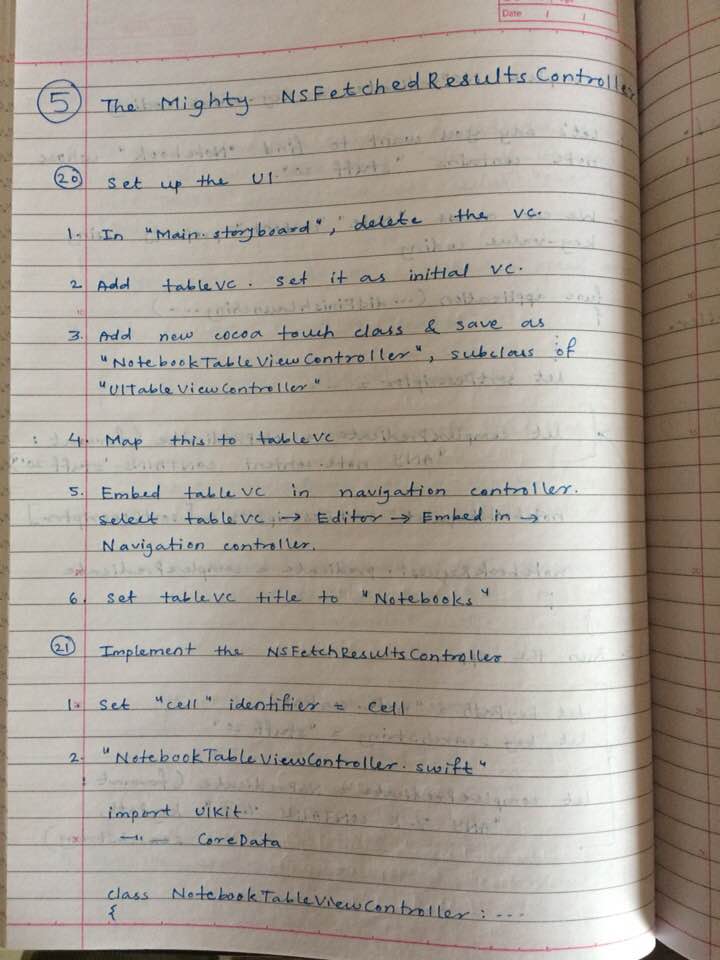 Date / /
5 The Mighty NSFetchedResultsController
20 Set up the UI
1. In "Main.storyboard", delete the VC.
2 Add table VC. Set it as initial VC.
3. Add new cocoa touch class & save as
"NotebookTableViewController", subclass of
"UITableViewController"
4. Map this to table VC
5. Embed table VC in navigation controller.
select table VC → Editor → Embed in →
Navigation controller.
6. Set table VC title to "Notebooks"
21 Implement the NSFetchResultsController
1. Set "cell" identifier = cell
2. "NotebookTableViewController.swift"
import UIKit
—"— CoreData
class NotebookTableViewController : ---
{